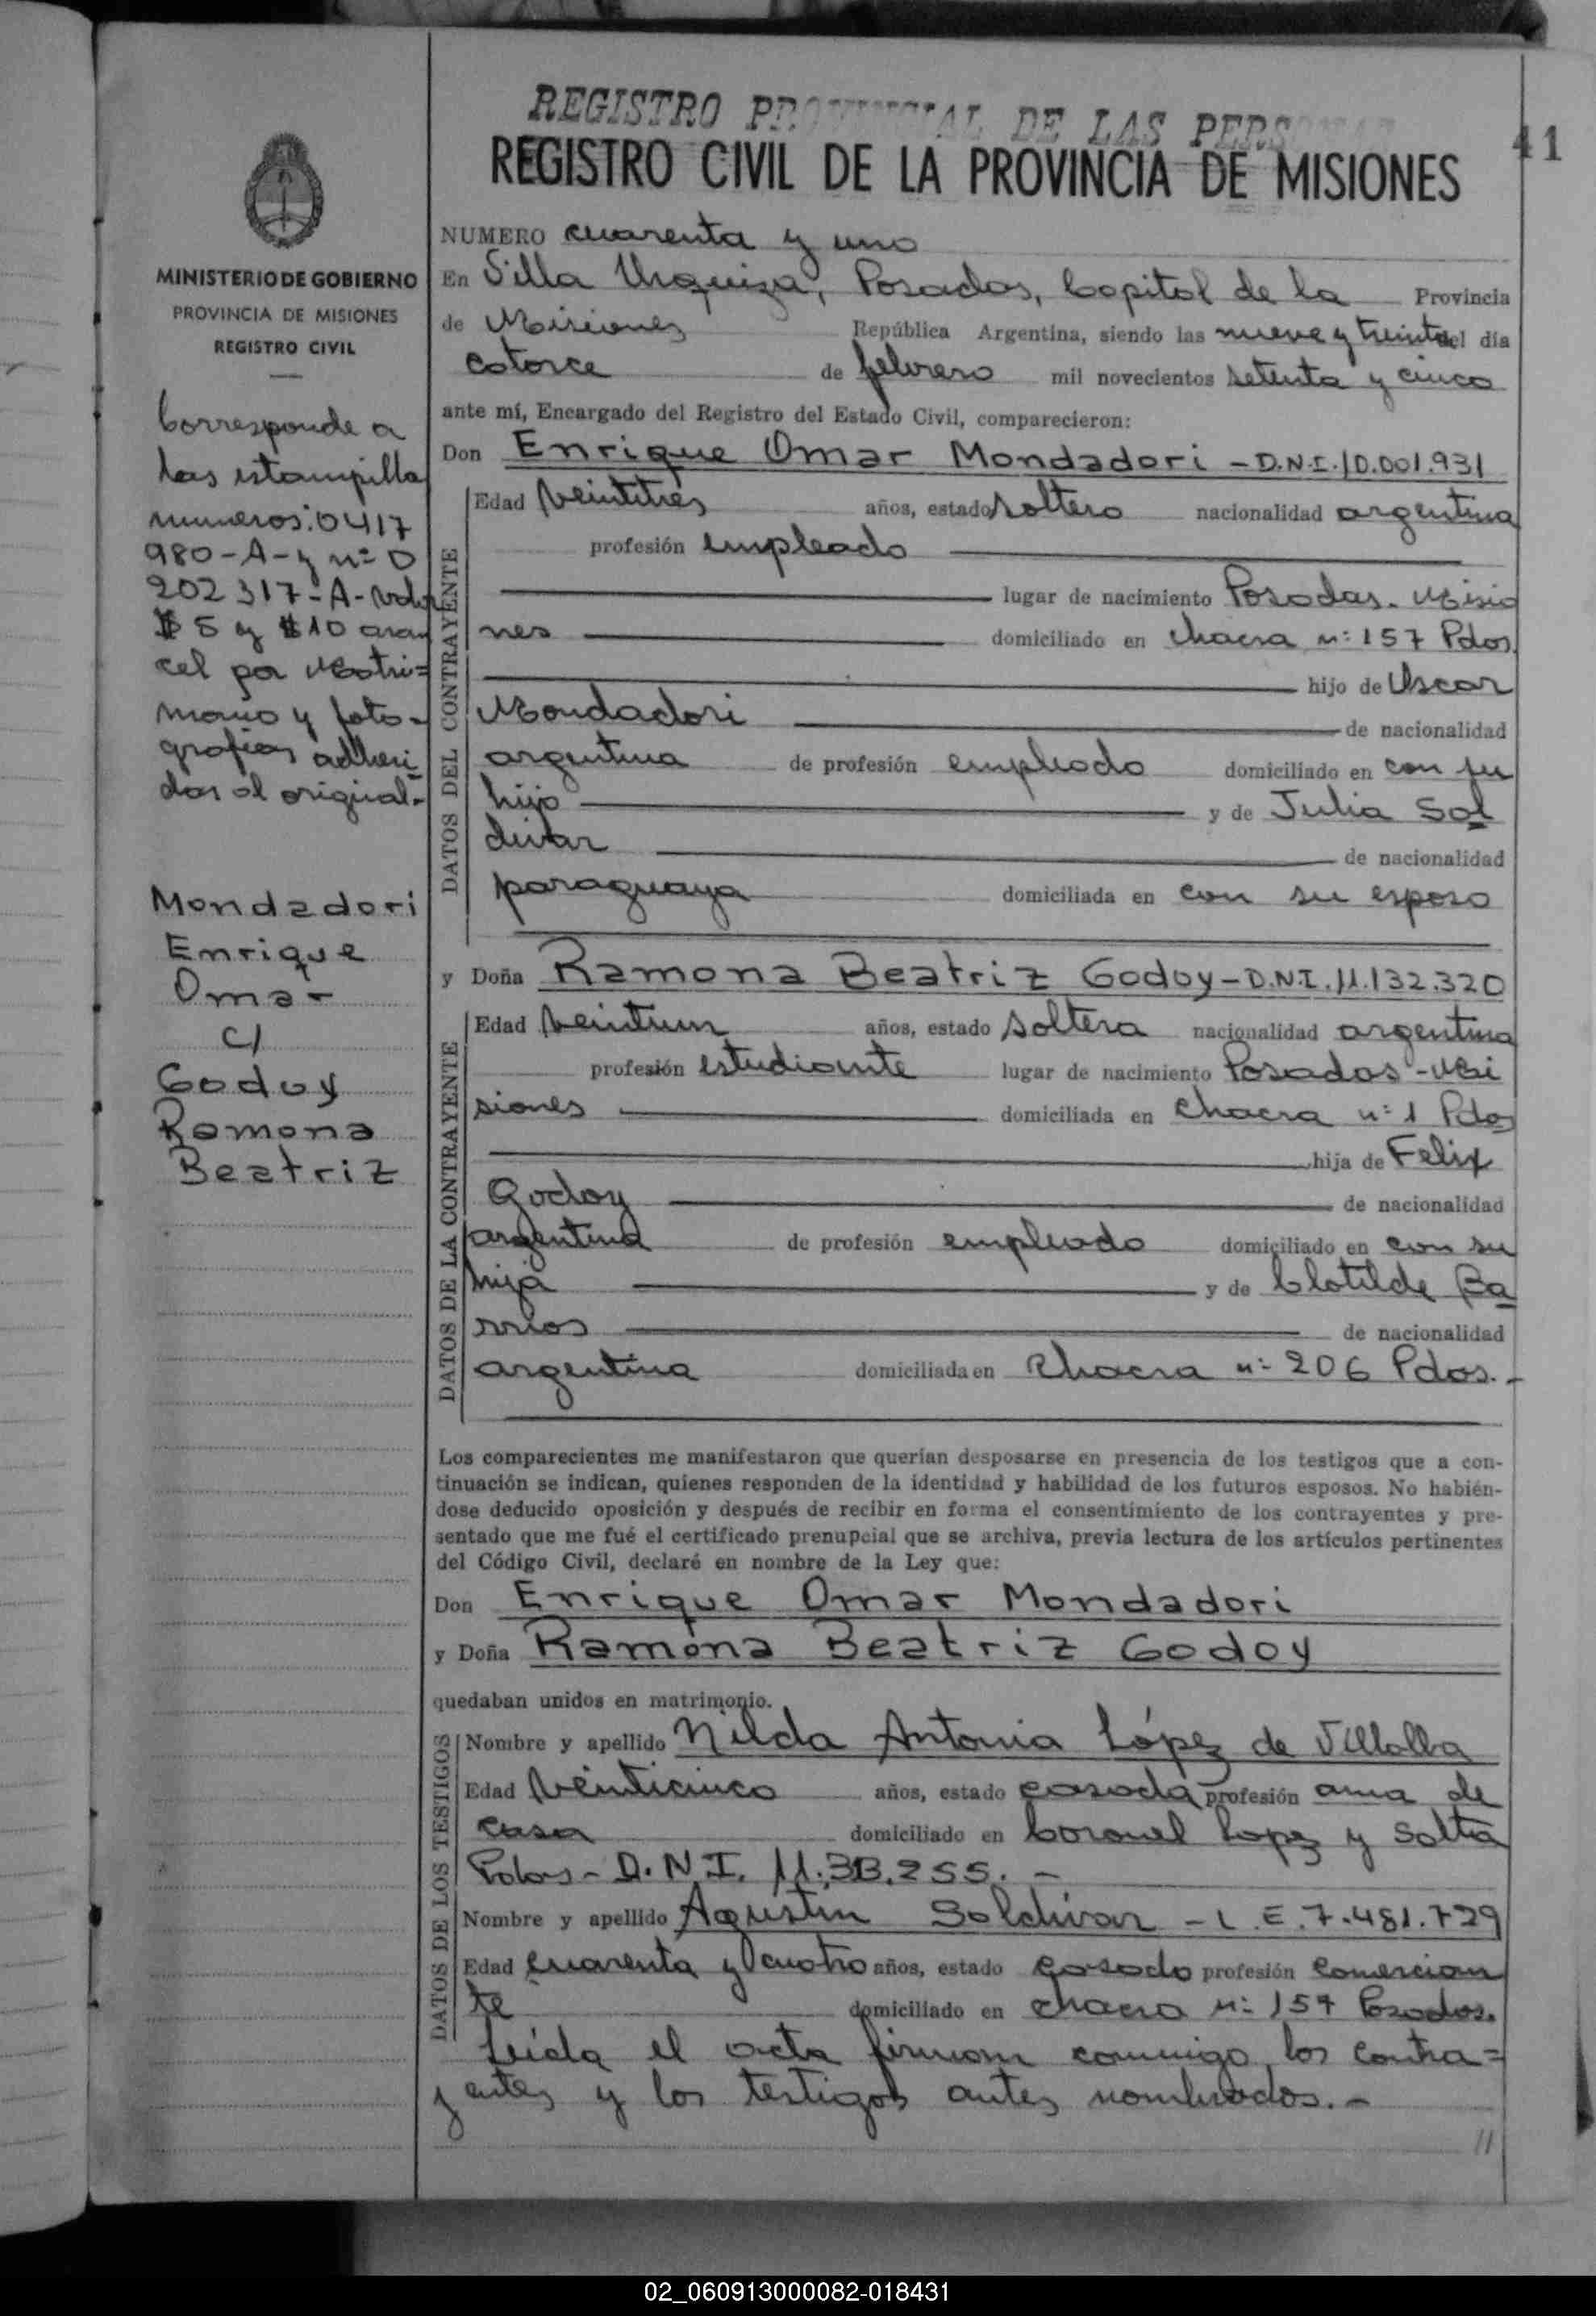 REGISTRO PROVINCIAL DE LAS PERSONAS
REGISTRO CIVIL DE LA PROVINCIA DE MISIONES
41
MINISTERIO DE GOBIERNO
PROVINCIA DE MISIONES
REGISTRO CIVIL
Corresponde a
las estampilla
numeros: 0417
980-A-y nº 0
202317-A-valor
$5 y $10 aran
cel por Matri=
monio y foto-
grafias adheri
das al original.-
Mondadori
Enrique
Omar
c/
Godoy
Ramona
Beatriz
NUMERO cuarenta y uno
En Villa Urquiza, Posadas, Capital de la Provincia
de Misiones República Argentina, siendo las nueve y treinta del día
catorce de febrero mil novecientos setenta y cinco
ante mí, Encargado del Registro del Estado Civil, comparecieron:
Don Enrique Omar Mondadori - D.N.I. 10.001.931
DATOS DEL CONTRAYENTE
Edad veintitres años, estado soltero nacionalidad argentina
profesión empleado
lugar de nacimiento Posadas. Misio
nes domiciliado en chacra nº 157 Pdas.
hijo de Oscar
Mondadori de nacionalidad
argentina de profesión empleado domiciliado en con su
hijo y de Julia Sal
divar de nacionalidad
paraguaya domiciliada en con su esposo
y Doña Ramona Beatriz Godoy - D.N.I. 11.132.320
DATOS DE LA CONTRAYENTE
Edad veintiun años, estado soltera nacionalidad argentina
profesión estudiante lugar de nacimiento Posadas - Mi
siones domiciliada en chacra nº 1 Pdas
hija de Felix
Godoy de nacionalidad
argentina de profesión empleado domiciliado en con su
hija y de Clotilde Ba
rrios de nacionalidad
argentina domiciliada en chacra nº 206 Pdas.-
Los comparecientes me manifestaron que querían desposarse en presencia de los testigos que a con-
tinuación se indican, quienes responden de la identidad y habilidad de los futuros esposos. No habién-
dose deducido oposición y después de recibir en forma el consentimiento de los contrayentes y pre-
sentado que me fué el certificado prenupcial que se archiva, previa lectura de los artículos pertinentes
del Código Civil, declaré en nombre de la Ley que:
Don Enrique Omar Mondadori
y Doña Ramona Beatriz Godoy
quedaban unidos en matrimonio.
DATOS DE LOS TESTIGOS
Nombre y apellido Nilda Antonia López de Villalba
Edad veinticinco años, estado casada profesión ama de
casa domiciliado en Coronel Lopez y Salta
Pdas - D.N.I.
Nombre y apellido Agustin Saldivar - L.E. 7.481.729
Edad cuarenta y cuatro años, estado casado profesión comercian
te domiciliado en chacra nº 157 Posadas.
Leida el acta firman conmigo los contra=
yentes y los testigos antes nombrados.-
//
02_060913000082-018431